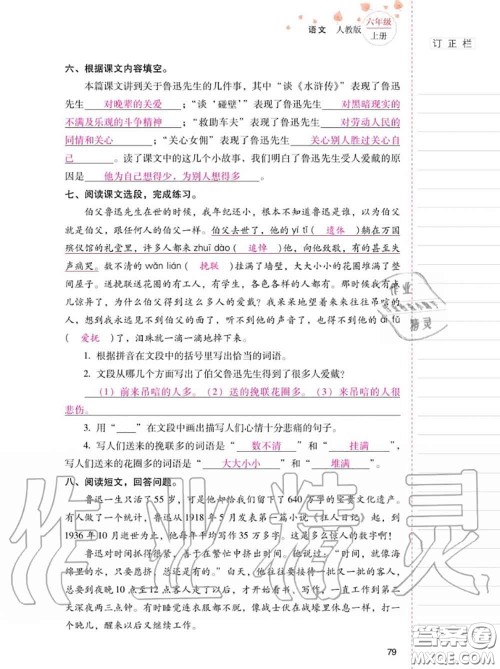 语文 人教版 六年级上册
订正栏
六、根据课文内容填空。
本篇课文讲到关于鲁迅先生的几件事，其中“谈《水浒传》”表现了鲁迅
先生对晚辈的关爱；“谈‘碰壁’”表现了鲁迅先生对黑暗现实的
不满及乐观的斗争精神；“救助车夫”表现了鲁迅先生对劳动人民的
同情和关心；“关心女佣”表现了鲁迅先生关心别人胜过关心自
己。读了课文中的这几个小故事，我们明白了鲁迅先生受人爱戴的原因
是他为自己想得少，为别人想得多。
七、阅读课文选段，完成练习。
伯父鲁迅先生在世的时候，我年纪还小，根本不知道鲁迅是谁，以为伯父
就是伯父，跟任何人的伯父一样。伯父去世了，他的yí tǐ（遗体）躺在万国
殡仪馆的礼堂里，许多人都来zhuī dào（追悼）他，向他致敬，有的甚至失
声痛哭。数不清的wǎn lián（挽联）挂满了墙壁，大大小小的花圈堆满了整
间屋子。送挽联送花圈的有工人，有学生，各色各样的人都有。那时候我有点
儿惊异了，为什么伯父得到这么多人的爱戴？我呆呆地望着来来往往吊唁的
人，想到我就要永远见不到伯父的面了，听不到他的声音了，也得不到他的ài fǔ
（爱抚）了，泪珠就一滴一滴地掉下来。
1. 根据拼音在文段中的括号里写出恰当的词语。
2. 文段从哪几个方面写出了伯父鲁迅先生得到了很多人爱戴？
（1）前来吊唁的人多。（2）送的挽联花圈多。（3）来吊唁的人很
悲伤。
3. 用“____”在文段中画出描写人们心情十分悲痛的句子。
4. 写人们送来的挽联多的词语是“数不清”和“挂满”，
写人们送来的花圈多的词语是“大大小小”和“堆满”。
八、阅读短文，回答问题。
鲁迅一生只活了55岁，可是他却给我们留下了640万字的宝贵文化遗产。
有人做了一个统计，鲁迅从1918年5月发表第一篇小说《狂人日记》起，到
1936年10月逝世为止，平均每年写作35万多字，这是多么惊人的数字啊！
鲁迅对时间抓得很紧，善于在繁忙中挤出时间。他说：“时间，就像海
绵里的水，只要愿挤，总还是有的。”白天，他往往要接待一批一批的客人，
晚上10点至12点客人走了以后，才开始看书、写作，一直工作到第
二天深夜两三点钟。有时睡觉连衣服都不脱，像战士伏在战壕里休息一样，打一
个盹儿，醒来以后又继续工作。
79
作业精灵
答案圈
MXQE.COM